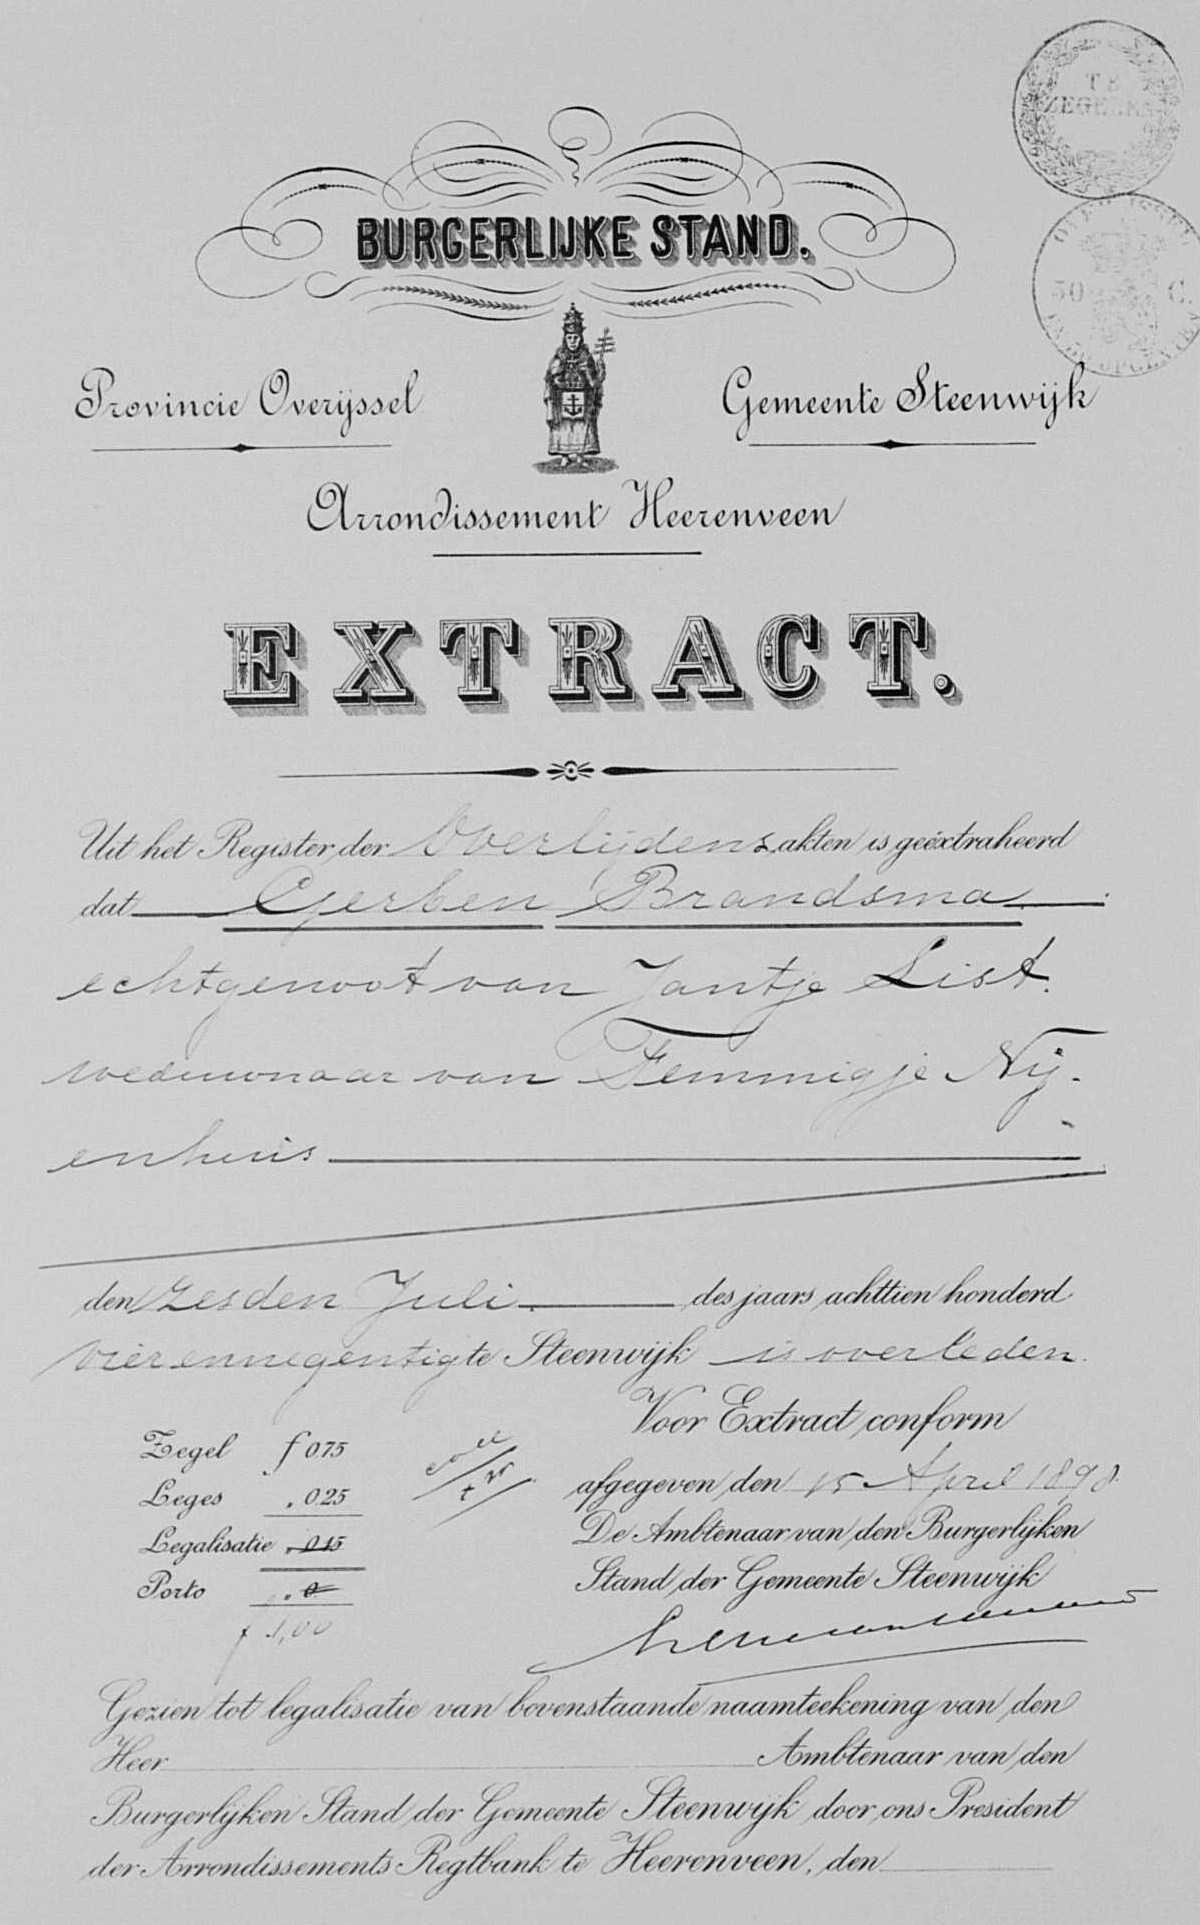 TE
ZEGELEN
BURGERLIJKE STAND.
OVERIJSSEL
50 C.
EN 38 OPCENTEN
Provincie Overijssel
Gemeente Steenwijk
Arrondissement Heerenveen
EXTRACT.
Uit het Register der Overlijdens akten is geëxtraheerd
dat Gerben Brandsma
echtgenoot van Jantje List.
weduwnaar van Femmigje Nij-
enhuis
den zesden Juli des jaars achttien honderd
vier en negentig te Steenwijk is overleden.
Voor Extract conform
Zegel f 0.75
afgegeven den 15 April 1898.
Leges „ 0.25
De Ambtenaar van den Burgerlijken
Legalisatie „ 0.15
Stand der Gemeente Steenwijk
Porto „ 0
f 1,00
Gezien tot legalisatie van bovenstaande naamteekening van den
Heer Ambtenaar van den
Burgerlijken Stand der Gemeente Steenwijk door ons President
der Arrondissements Regtbank te Heerenveen, den